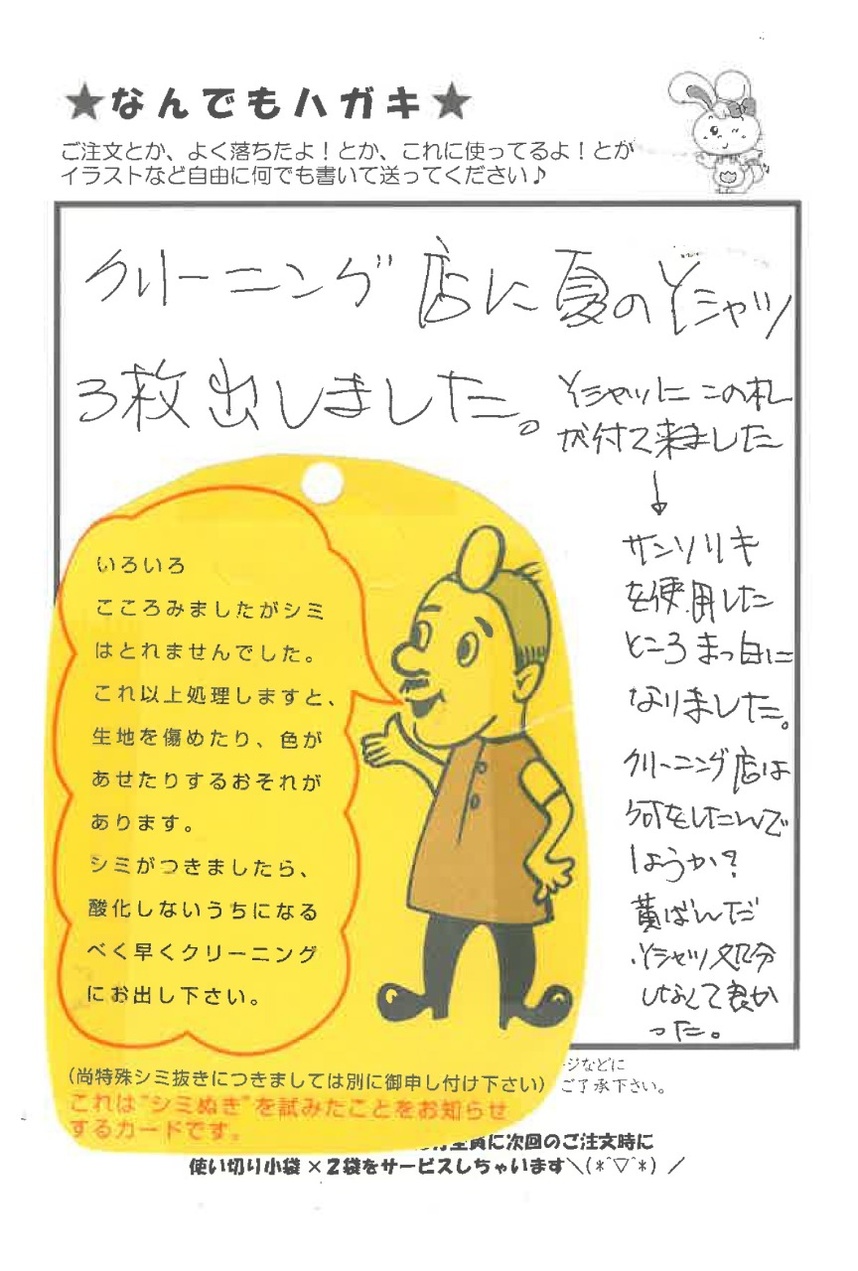 ★なんでもハガキ★
ご注文とか、よく落ちたよ！とか、これに使ってるよ！とか
イラストなど自由に何でも書いて送ってください♪
クリーニング店に夏のYシャツ
3枚出しました。
Yシャツにこの札
が付いて来ました
↓
サンソリキ
を使用した
ところまっ白に
なりました。
クリーニング店は
何をしたんで
しょうか？
黄ばんだ
Yシャツ処分
しなくて良か
った。
いろいろ
こころみましたがシミ
はとれませんでした。
これ以上処理しますと、
生地を傷めたり、色が
あせたりするおそれが
あります。
シミがつきましたら、
酸化しないうちになる
べく早くクリーニング
にお出し下さい。
（尚特殊シミ抜きにつきましては別に御申し付け下さい）
これは"シミぬき"を試みたことをお知らせ
するカードです。
ージなどに
ご了承下さい。
全員に次回のご注文時に
使い切り小袋×2袋をサービスしちゃいます＼(*ˆ▽ˆ*)／